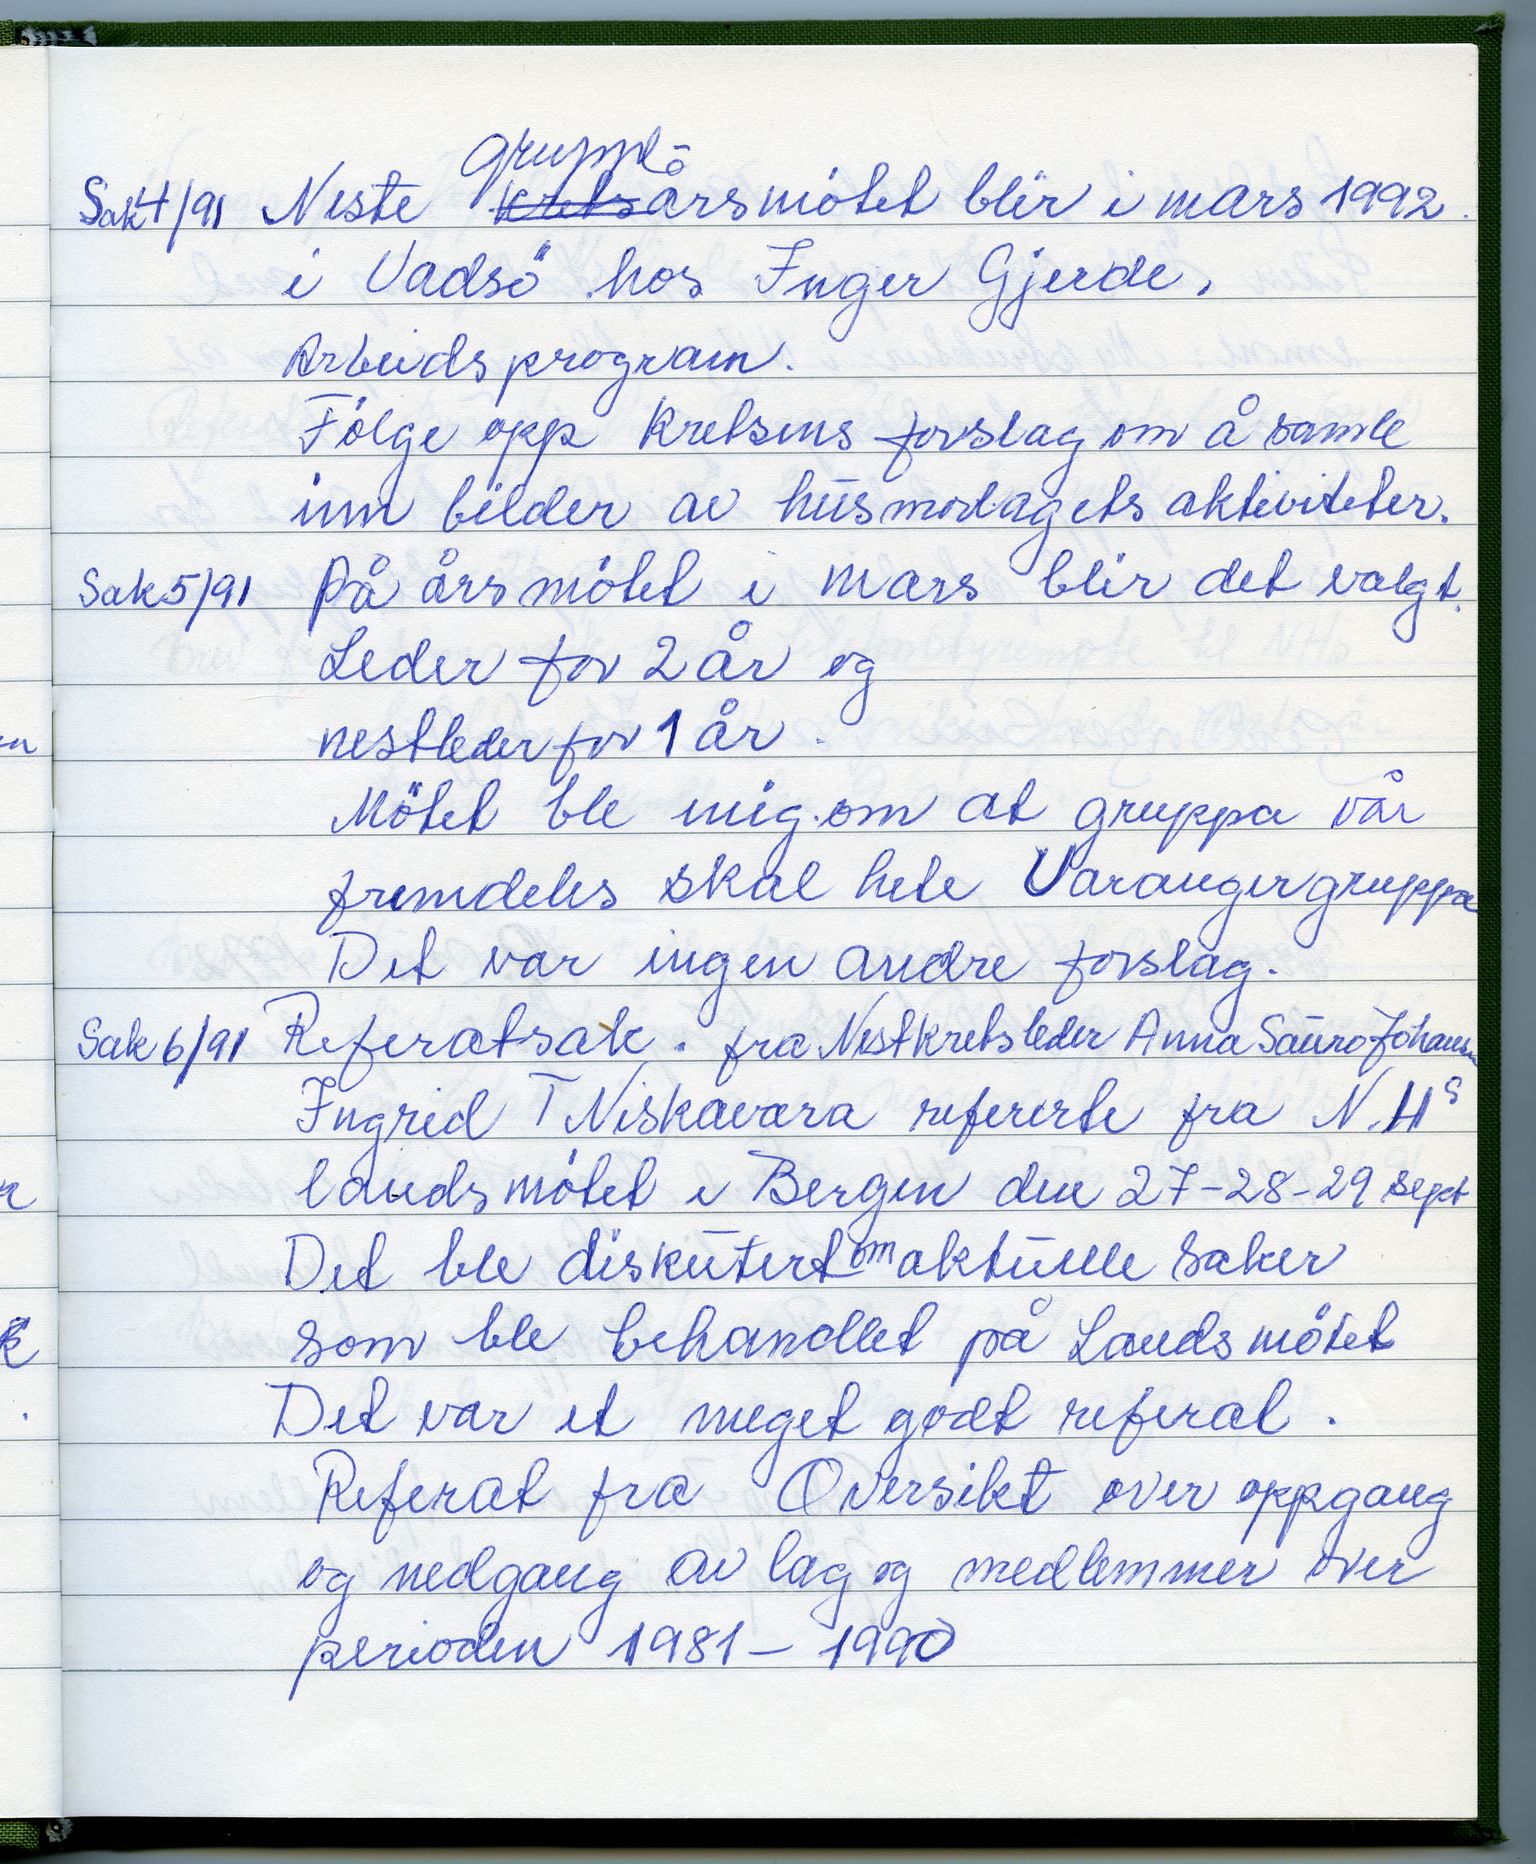 gruppe-
Sak 4/91 Neste kretsårsmötet blir i mars 1992.
i Vadsö hos Inger Gjerde.
Arbeidsprogram.
Fölge opp kretsens forslag om å samle
inn bilder av husmorlagets aktiviteter.
Sak 5/91 På årsmötet i mars blir det valgt.
Leder for 2 år og
nestleder for 1 år.
Mötet ble enig om at gruppa vår
fremdeles skal hete Varangergruppa
Det var ingen andre forslag.
Sak 6/91 Referatsak. fra Nestkretsleder Anna Sauro Johansen
Ingrid T Niskavara refererte fra N.H.s
landsmötet i Bergen den 27-28-29 sept
Det ble diskutert om aktuelle saker
som ble behandlet på Landsmötet
Det var et meget godt referat.
Referat fra Oversikt over oppgang
og nedgang av lag og medlemmer over
perioden 1981-1990